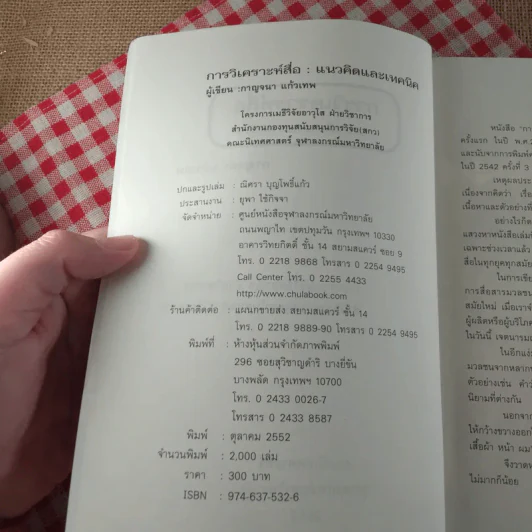 การวิเคราะห์สื่อ : แนวคิดและเทคนิค
ผู้เขียน :กาญจนา แก้วเทพ
โครงการเมธีวิจัยอาวุโส ฝ่ายวิชาการ
สำนักงานกองทุนสนับสนุนการวิจัย(สกว)
คณะนิเทศศาสตร์ จุฬาลงกรณ์มหาวิทยาลัย
ปกและรูปเล่ม : ณิศรา บุญโพธิ์แก้ว
ประสานงาน : ยุพา ใช้กิจจา
จัดจำหน่าย : ศูนย์หนังสือจุฬาลงกรณ์มหาวิทยาลัย
ถนนพญาไท เขตปทุมวัน กรุงเทพฯ 10330
อาคารวิทยกิตติ์ ชั้น 14 สยามสแควร์ ซอย 9
โทร. 0 2218 9868 โทรสาร 0 2254 9495
Call Center โทร. 0 2255 4433
http://www.chulabook.com
ร้านค้าติดต่อ : แผนกขายส่ง สยามสแควร์ ชั้น 14
โทร. 0 2218 9889-90 โทรสาร 0 2254 9495
พิมพ์ที่ : ห้างหุ้นส่วนจำกัดภาพพิมพ์
296 ซอยสุวิชาญดำริ บางยี่ขัน
บางพลัด กรุงเทพฯ 10700
โทร. 0 2433 0026-7
โทรสาร 0 2433 8587
พิมพ์ : ตุลาคม 2552
จำนวนพิมพ์ : 2,000 เล่ม
ราคา : 300 บาท
ISBN : 974-637-532-6
หนังสือ "กา
ครั้งแรก ในปี พ.ศ.
และนับจากการพิมพ์ค
ในปี 2542 ครั้งที่ 3
เหตุผลประ
เนื่องจากคิดว่า เรื่อ
เนื้อหาและตัวอย่างที่
อย่างไรก็ต
แสวงหาหนังสือเล่มก็
เฉพาะช่วงเวลาแล้ว
สื่อในทุกยุคทุกสมัย
ในการเขีย
การสื่อสารมวลชน
สมัยใหม่ เมื่อเราจ
ผู้ผลิตหรือผู้บริโภค
ในวันนี้ เจตนารม
ในอีกแง่
มวลชนจากหลาก
ตัวอย่างเช่น คำว
นิยามที่ต่างกัน
นอกจาก
ให้กว้างขวางออก
เสื้อผ้า หน้า ผม
จึงวาดห
ไม่มากก็น้อย